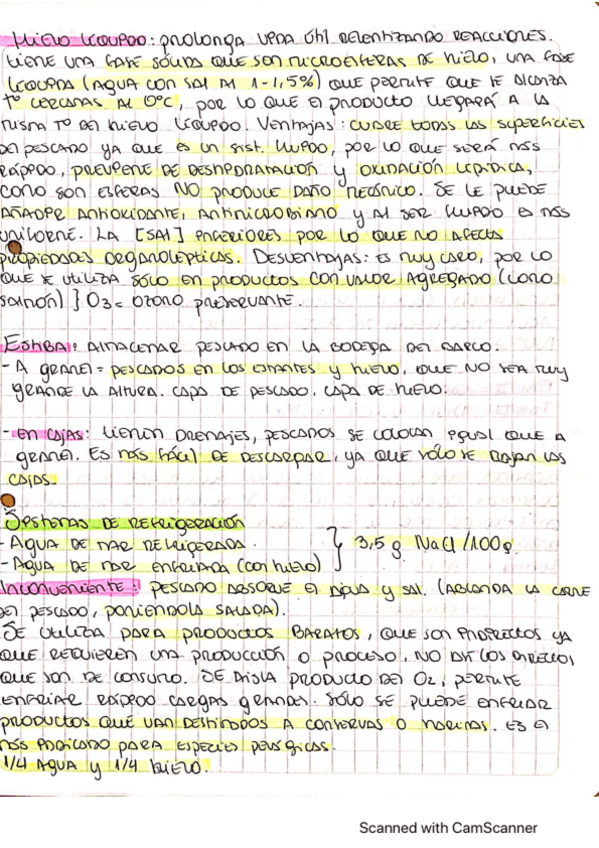 HIELO LÍQUIDO: PROLONGA VIDA ÚTIL RELENTIZANDO REACCIONES.
TIENE UNA FASE SÓLIDA QUE SON MICROESFERAS DE HIELO, UNA FASE
LÍQUIDA (AGUA CON SAL AL 1-1,5%) QUE PERMITE QUE SE ALCANZA
Tº CERCANAS AL 0ºC, POR LO QUE EL PRODUCTO LLEGARÁ A LA
MISMA Tº DEL HIELO LÍQUIDO. VENTAJAS: CUBRE TODAS LAS SUPERFICIES
DEL PESCADO YA QUE ES UN SIST. FLUIDO, POR LO QUE SERÁ MÁS
RÁPIDO, PREVIENE DE DESHIDRATACIÓN Y OXIDACIÓN LIPÍDICA,
COMO SON ESFERAS NO PRODUCE DAÑO MECÁNICO. SE LE PUEDE
AÑADIR ANTIOXIDANTE, ANTIMICROBIANO Y AL SER FLUIDO ES MÁS
UNIFORME. LA [SAL] INFERIORES POR LO QUE NO AFECTA
PROPIEDADES ORGANOLÉPTICAS. DESVENTAJAS: ES MUY CARO, POR LO
QUE SE UTILIZA SÓLO EN PRODUCTOS CON VALOR AGREGADO (COMO
SALMÓN) } O3 = OZONO PRESERVANTE.
ESTIBA: ALMACENAR PESCADO EN LA BODEGA DEL BARCO.
- A GRANEL = PESCADOS EN LOS ESTANTES Y HIELO, QUE NO SEA MUY
GRANDE LA ALTURA. CAPA DE PESCADO. CAPA DE HIELO.
- EN CAJAS: TIENEN DRENAJES, PESCADOS SE COLOCAN IGUAL QUE A
GRANEL. ES MÁS FÁCIL DE DESCARGAR, YA QUE SÓLO SE BAJAN LAS
CAJAS.
SISTEMAS DE REFRIGERACIÓN
- AGUA DE MAR REFRIGERADA.
- AGUA DE MAR ENFRIADA (CON HIELO) } 3,5 g NaCl/100g.
INCONVENIENTE: PESCADO ABSORBE EL AGUA Y SAL. (ABLANDA LA CARNE
DEL PESCADO, PONIÉNDOLA SALADA).
SE UTILIZA PARA PRODUCTOS BARATOS, QUE SON INDIRECTOS YA
QUE REQUIEREN UNA PRODUCCIÓN O PROCESO, NO ASÍ LOS DIRECTOS
QUE SON DE CONSUMO. SE AISLA PRODUCTO DEL O2, PERMITE
ENFRIAR RÁPIDO CARGAS GRANDES. SÓLO SE PUEDE ENFRIAR
PRODUCTOS QUE VAN DESTINADOS A CONSERVAS O HARINAS. ES EL
MÁS INDICADO PARA ESPECIES PELÁGICAS.
1/4 AGUA Y 1/4 HIELO.
Scanned with CamScanner